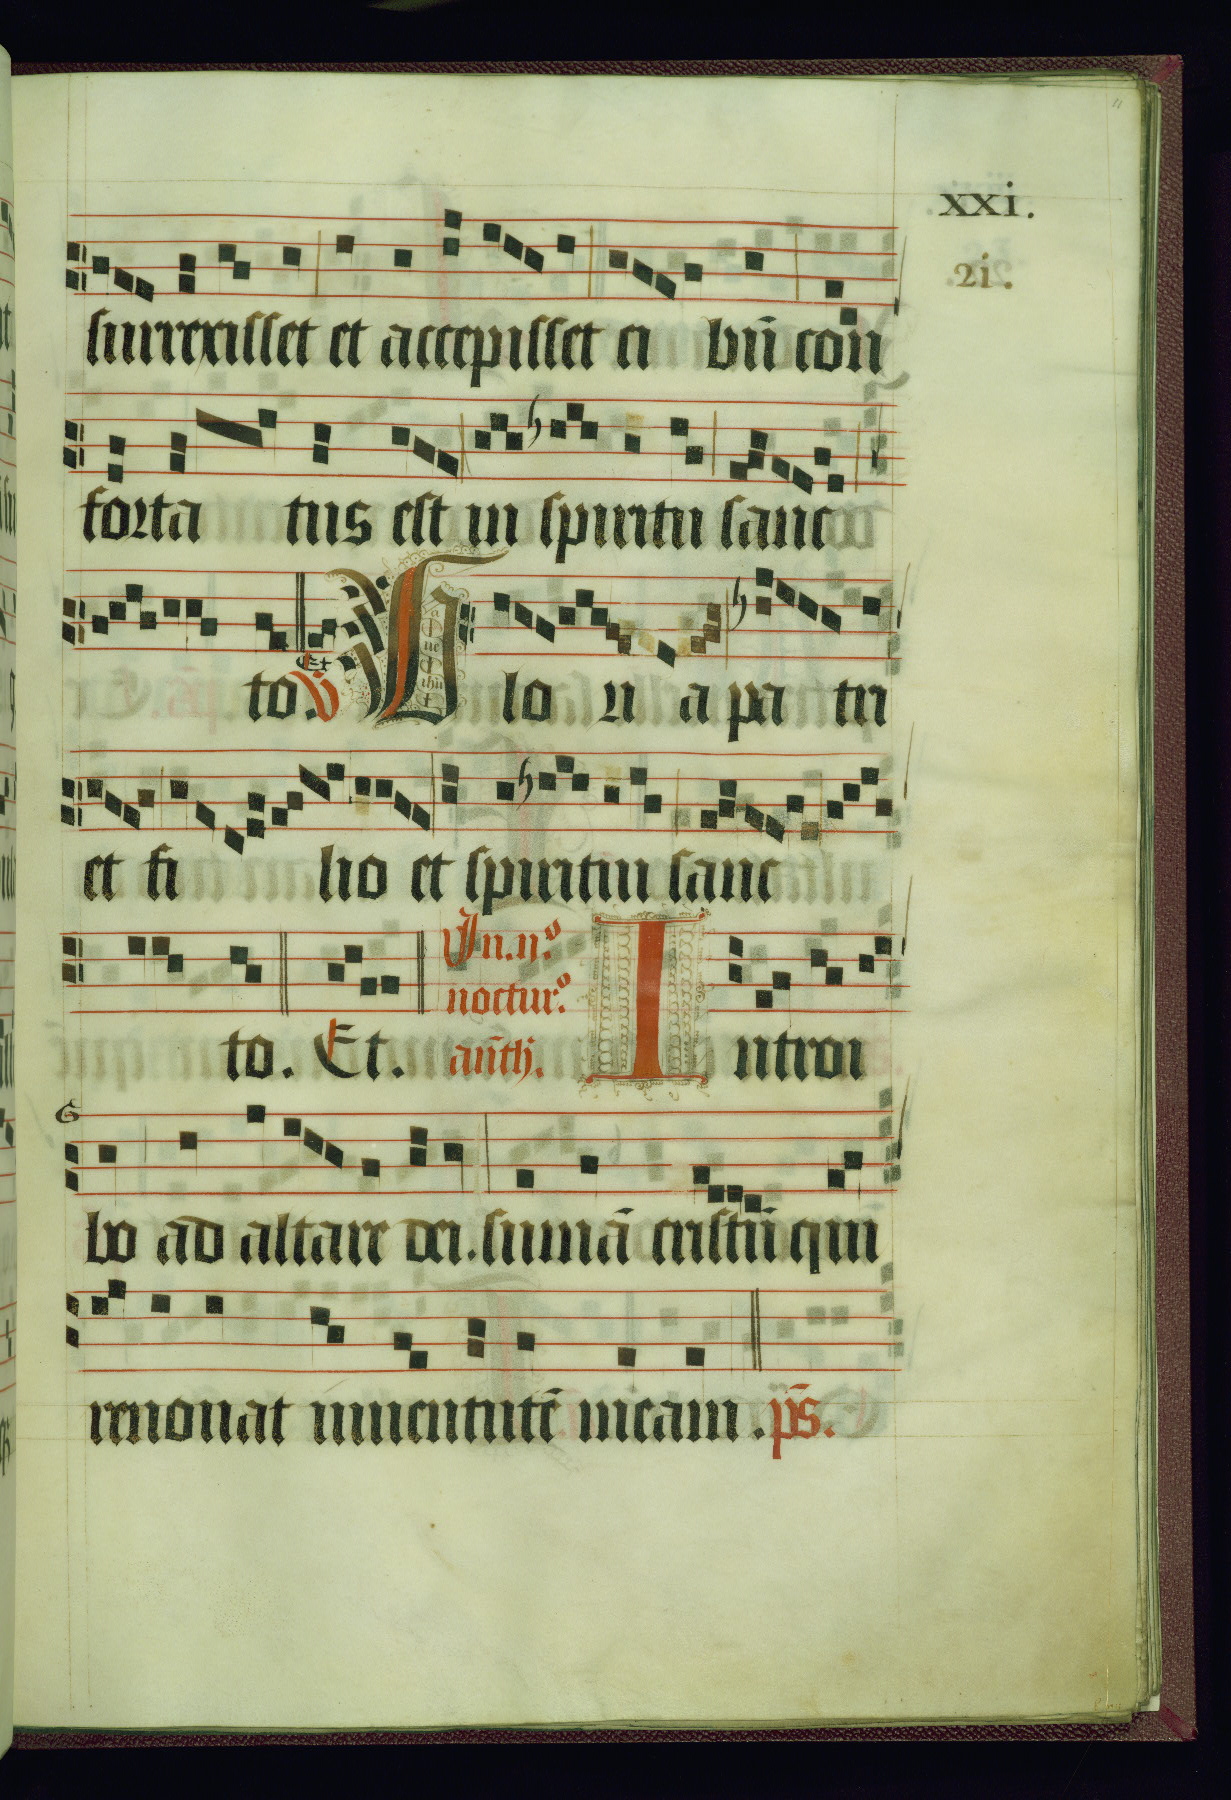 xxi.
2i.
surrexisset et accepisset ci bū con
forta tus est in spiritu sanc
Et
to. V Glo ri a pa tri
et fi lio et spiritui sanc
to. Et. In .ij.º noctur.º anth. Introi
bo ad altare dei. sumā cristū qui
renouat iuuentutē meam . ps.